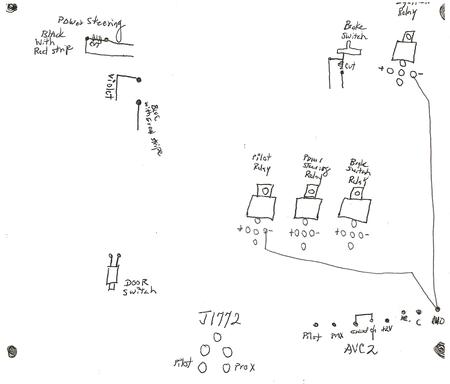 Power Steering
Black
With
Red stripe
cut
Violet
Brake
Switch
cut
Relay
Pilot
Relay
Power
Steering
Relay
Brake
Switch
Relay
+
-
+
-
+
-
+
-
DOOR
Switch
J1772
Pilot
Prox
Pilot
Prox
+12V
C
AVC2